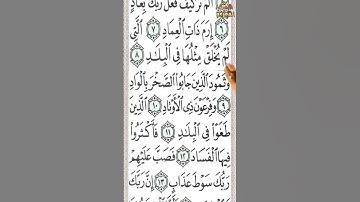 أَلَمْ تَرَ كَيْفَ فَعَلَ رَبُّكَ بِعَادٍ
﴿٦﴾ إِرَمَ ذَاتِ الْعِمَادِ ﴿٧﴾ الَّتِي
لَمْ يُخْلَقْ مِثْلُهَا فِي الْبِلَادِ ﴿٨﴾
وَثَمُودَ الَّذِينَ جَابُوا الصَّخْرَ بِالْوَادِ
﴿٩﴾ وَفِرْعَوْنَ ذِي الْأَوْتَادِ ﴿١٠﴾ الَّذِينَ
طَغَوْا فِي الْبِلَادِ ﴿١١﴾ فَأَكْثَرُوا
فِيهَا الْفَسَادَ ﴿١٢﴾ فَصَبَّ عَلَيْهِمْ
رَبُّكَ سَوْطَ عَذَابٍ ﴿١٣﴾ إِنَّ رَبَّكَ